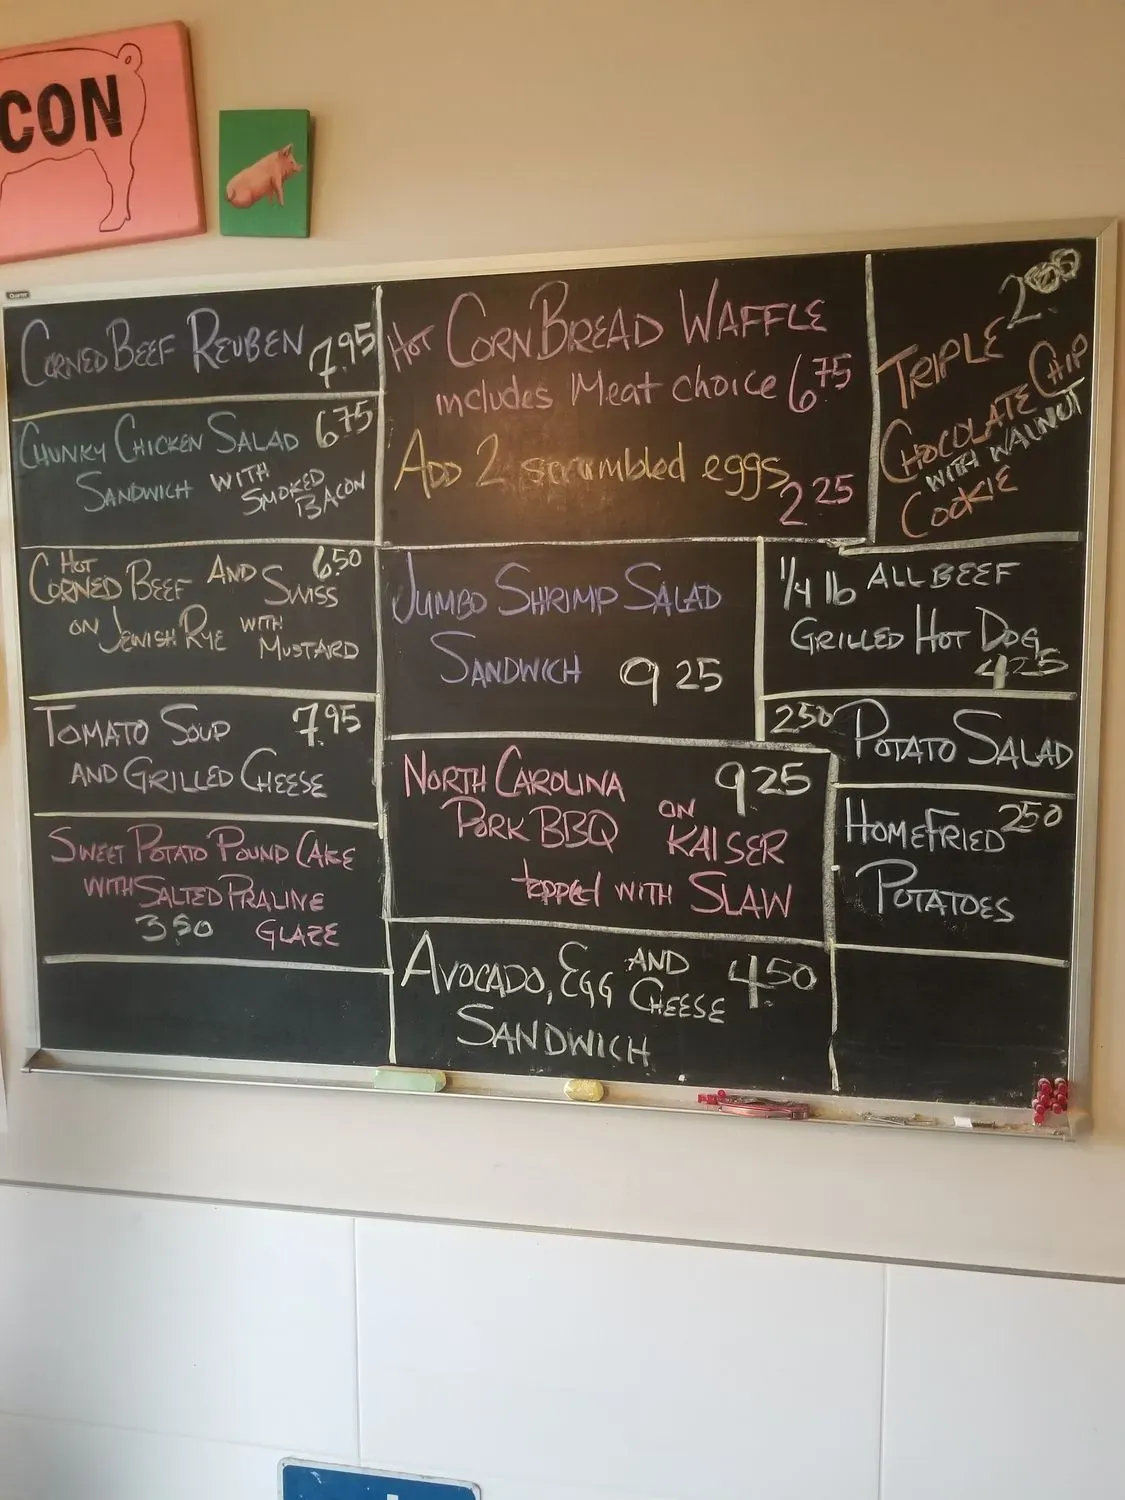 CON
Quartet
CORNED BEEF REUBEN 7.95
CHUNKY CHICKEN SALAD 6.75
SANDWICH WITH
SMOKED
BACON
HOT
CORNED BEEF AND SWISS 6.50
ON JEWISH RYE WITH
MUSTARD
TOMATO SOUP 7.95
AND GRILLED CHEESE
SWEET POTATO POUND CAKE
WITH SALTED PRALINE
3.50 GLAZE
HOT CORNBREAD WAFFLE
includes Meat choice 6.75
ADD 2 scrambled eggs
2.25
JUMBO SHRIMP SALAD
SANDWICH 9.25
NORTH CAROLINA 9.25
PORK BBQ ON
KAISER
topped WITH SLAW
AVOCADO, EGG AND 4.50
CHEESE
SANDWICH
TRIPLE
CHOCOLATE CHIP
WITH WALNUT
COOKIE
1/4 lb ALL BEEF
GRILLED HOT DOG
4.25
2.50 POTATO SALAD
HOMEFRIED 2.50
POTATOES